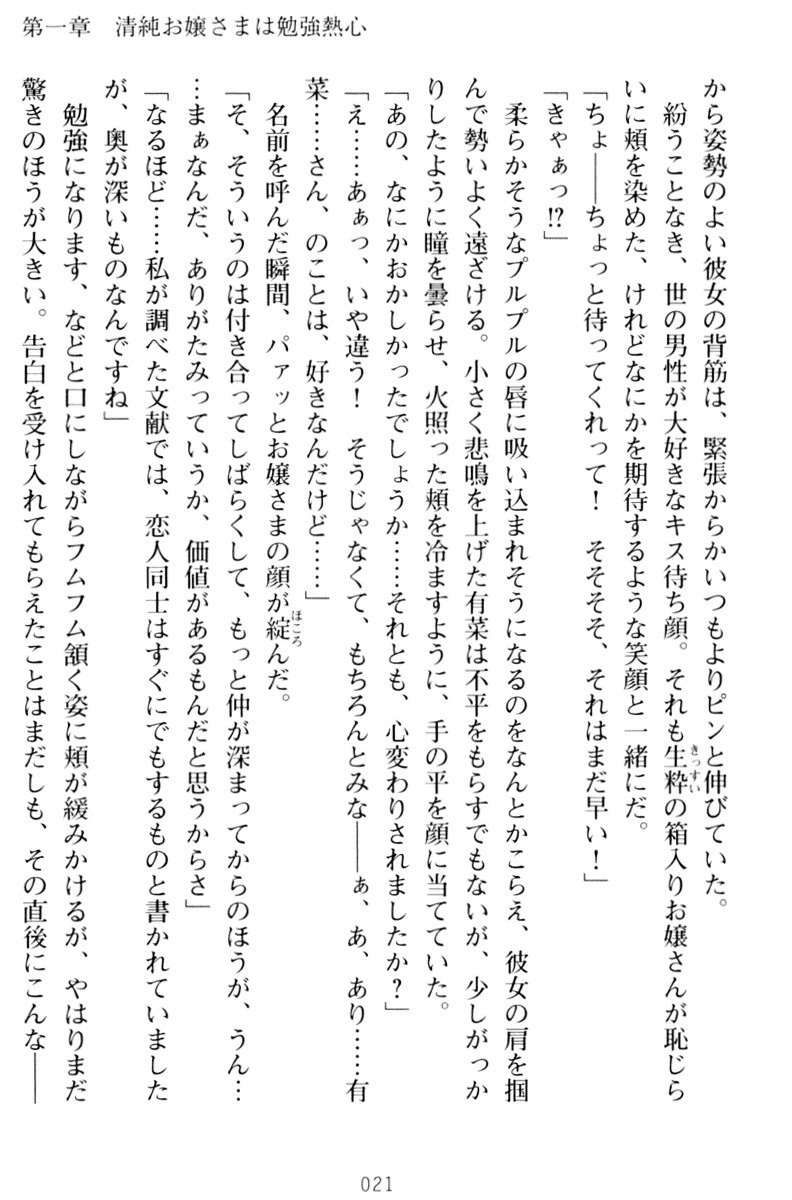 第一章　清純お嬢さまは勉強熱心
から姿勢のよい彼女の背筋は、緊張からかいつもよりピンと伸びていた。
　紛うことなき、世の男性が大好きなキス待ち顔。それも生粋の箱入りお嬢さんが恥じら
いに頬を染めた、けれどなにかを期待するような笑顔と一緒にだ。
「ちょ――ちょっと待ってくれって！　そそそそ、それはまだ早い！」
「きゃぁっ!?」
　柔らかそうなプルプルの唇に吸い込まれそうになるのをなんとかこらえ、彼女の肩を掴
んで勢いよく遠ざける。小さく悲鳴を上げた有菜は不平をもらすでもないが、少しがっか
りしたように瞳を曇らせ、火照った頬を冷ますように、手の平を顔に当てていた。
「あの、なにかおかしかったでしょうか……それとも、心変わりされましたか？」
「え……あぁっ、いや違う！　そうじゃなくて、もちろんとみな――ぁ、あ、あり……有
菜……さん、のことは、好きなんだけど……」
　名前を呼んだ瞬間、パァッとお嬢さまの顔が綻んだ。
「そ、そういうのは付き合ってしばらくして、もっと仲が深まってからのほうが、うん…
…まぁなんだ、ありがたみっていうか、価値があるもんだと思うからさ」
「なるほど……私が調べた文献では、恋人同士はすぐにでもするものと書かれていました
が、奥が深いものなんですね」
　勉強になります、などと口にしながらフムフム頷く姿に頬が緩みかけるが、やはりまだ
驚きのほうが大きい。告白を受け入れてもらえたことはまだしも、その直後にこんな――
きっすい
ほころ
021